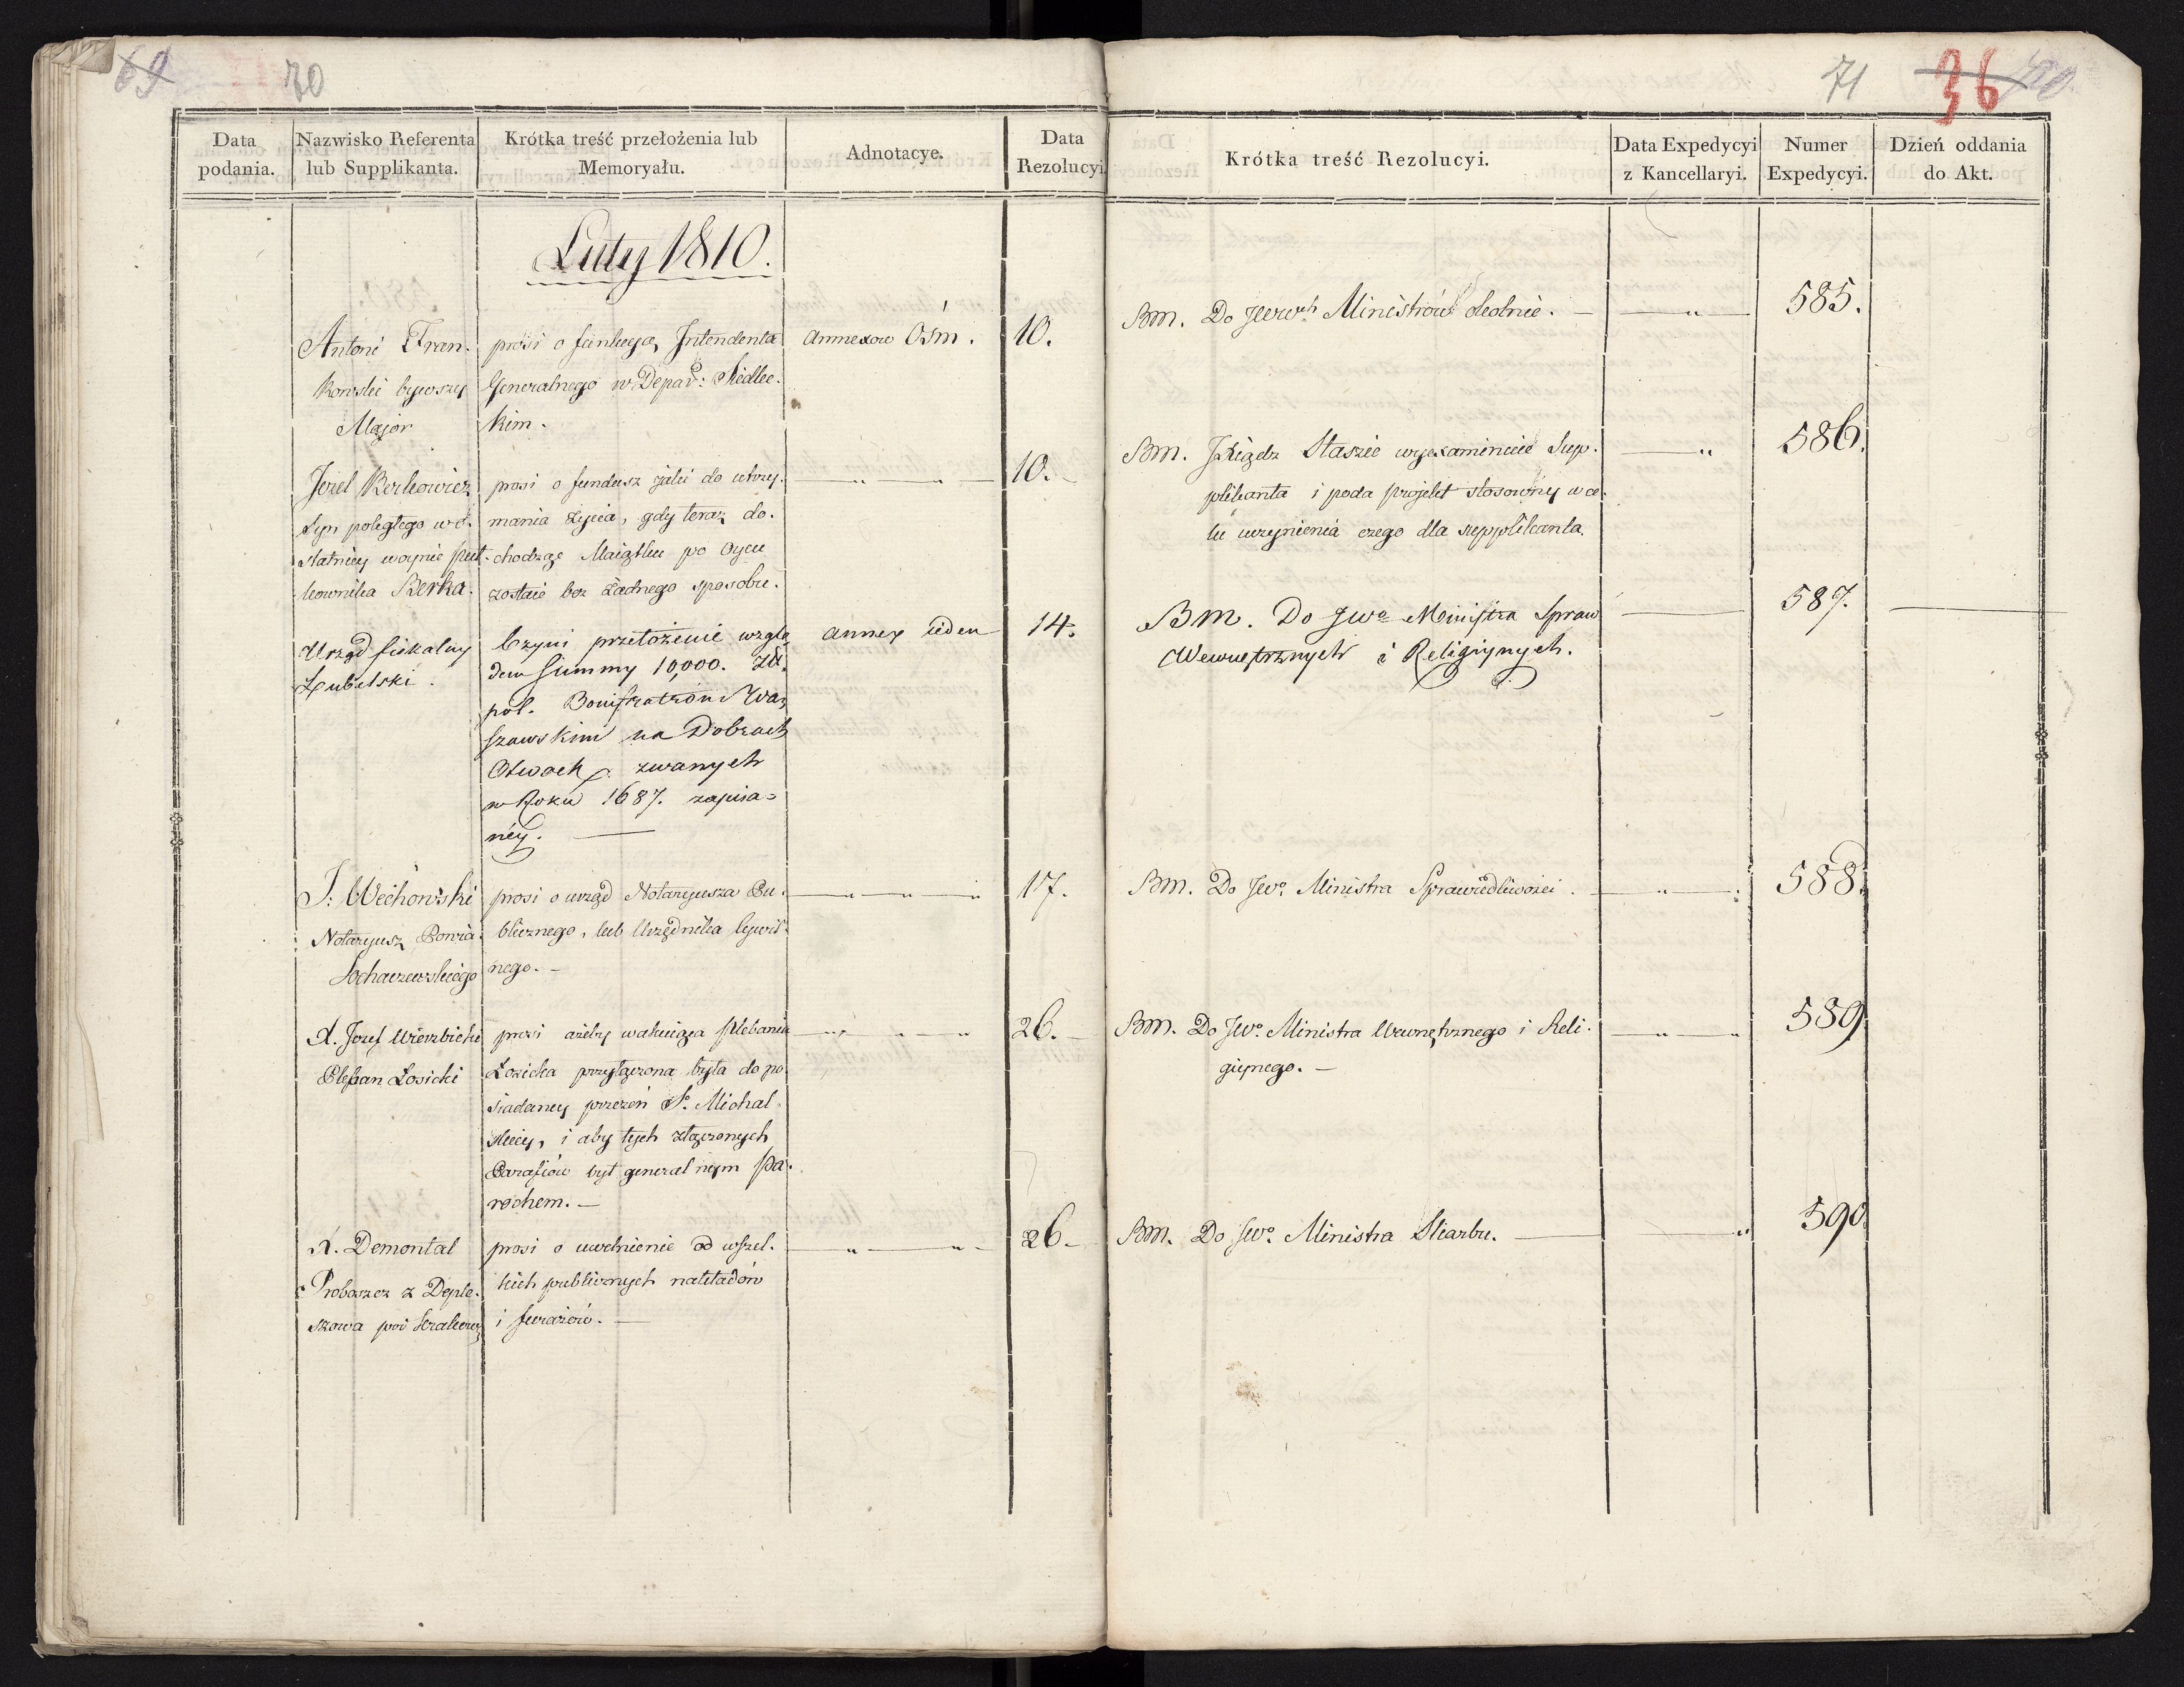 69 70
71 36 70.
Data podania.
Nazwisko Referenta lub Supplikanta.
Krótka treść przełożenia lub Memoryału.
Adnotacye.
Data Rezolucyi
Krótka treść Rezolucyi.
Data Expedycyi z Kancellaryi.
Numer Expedycyi.
Dzień oddania do Akt.
Luty 1810.
Antoni Fran-
kowski bywszy
Major
prosi o funkcyą Intendenta
Generalnego w Depar: Siedlec-
kim.
Annexow Ośm.
10.
Bm. Do JWWch Ministrów ołolnie.
585.
Jozel Berkowicz
Syn poległego w o-
statniey woynie puł-
kownika Berka.
prosi o fundusz jaki do utrzy-
mania życia, gdy teraz do-
chodząc Maiątku po Oycu
zostaie bez żadnego sposobu.
10.
Bm. JXiądz Staszic wyexaminuie Sup-
plikanta i poda projekt stosowny w ce-
lu uczynienia czego dla supplikanta.
586.
Urząd fiskalny
Lubelski.
Czyni przełożenie wzglę
dem Summy 10,000. Zł.
pol. Bonifratrom War
szawskim na Dobrach
Otwock zwanych
w Roku 1687. zapisa=
ney.
annex ieden
14.
Bm. Do JWo Ministra Spraw
Wewnętrznych i Religiynych.
587.
J: Wechowski
Notaryusz Powia.
Sochaczewskiego
prosi o urząd Notaryusza Pu-
blicznego, lub Urzędnika Cywil-
nego.
17.
Bm. Do JWo Ministra Sprawiedliwości.
588.
X. Jozef Wierzbicki
Pleban Łosicki
prosi ażeby wakuiąca plebania
Łosicka przyłączona była do po
siadaney przezeń So Michal-
skiey, i aby tych złączonych
Parafiów był generalnym Pa-
rochem.
26.
Bm. Do JWo Ministra Wewnętrznego i Reli-
giynego.
589.
X. Demontal
Proboszcz z
prosi o uwolnienie od wszel-
kich publicznych nakładów
i furażów.
26
Bm. Do JWo Ministra Skarbu.
590.